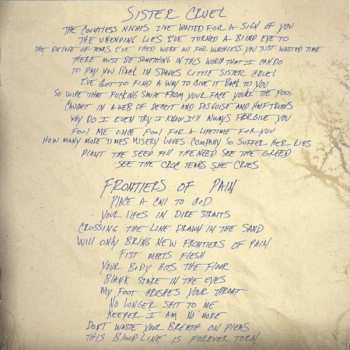 SISTER CRUEL
THE COUNTLESS NIGHTS I'VE WAITED FOR A SIGN OF YOU
THE UNENDING LIES I'VE TURNED A BLIND EYE TO
THE TEARS I'VE CRIED WERE ALL FOR WORTHLESS YOU JUST WASTED TIME
THERE MUST BE SOMETHING IN THIS WORLD THAT I CAN DO
TO PAY YOU BACK IN SPADES LITTLE SISTER CRUEL
I'VE GOT TO FIND A WAY TO GIVE IT BACK TO YOU
SO WIPE THAT FUCKING SMIRK FROM YOUR FACE YOU'RE THE FOOL
CAUGHT IN A WEB OF DECEIT AND DISGUISE AND HALF TRUTHS
WHY DO I EVEN TRY I KNOW I'LL ALWAYS FORGIVE YOU
FOOL ME ONCE FOOL FOR A LIFETIME FOR YOU
HOW MANY MORE TIMES MISERY LOVES COMPANY SO SUFFER HER LIES
PLANT THE SEED SEE THE GREED
SEE THE CROC TEARS SHE CRIES
FRONTIERS OF PAIN
PLACE A CALL TO GOD
YOUR LIFES IN DIRE STRAITS
CROSSING THE LINE DRAWN IN THE SAND
WILL ONLY BRING NEW FRONTIERS OF PAIN
FIST MEETS FLESH
YOUR BODY HITS THE FLOOR
BLANK STARE IN THE EYES
MY FOOT CRUSHES YOUR THROAT
NO LONGER SHIT TO ME
KEEPER I AM NO MORE
DON'T WASTE YOUR BREATH ON PLEAS
THIS BLOODLINE IS FOREVER TORN